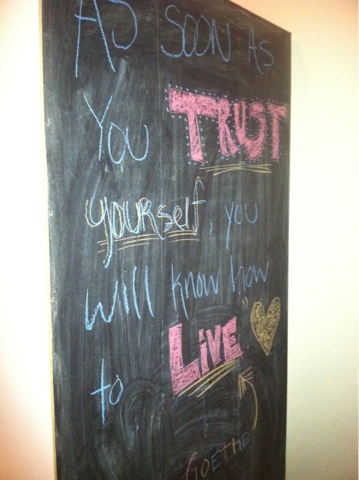 AS SOON AS
You TRUST
yourself, you
will know how
to LIVE"
GOETHE